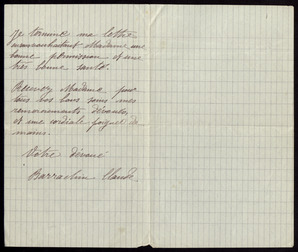 Je termine ma lettre
en vous souhaitant Madame une
bonne permission et une
très bonne santé.
Recevez Madame pour
tous vos bons soins mes
remerciements dévoués
et une cordiale poignée de
mains.
Votre dévoué
Barrachin Claude